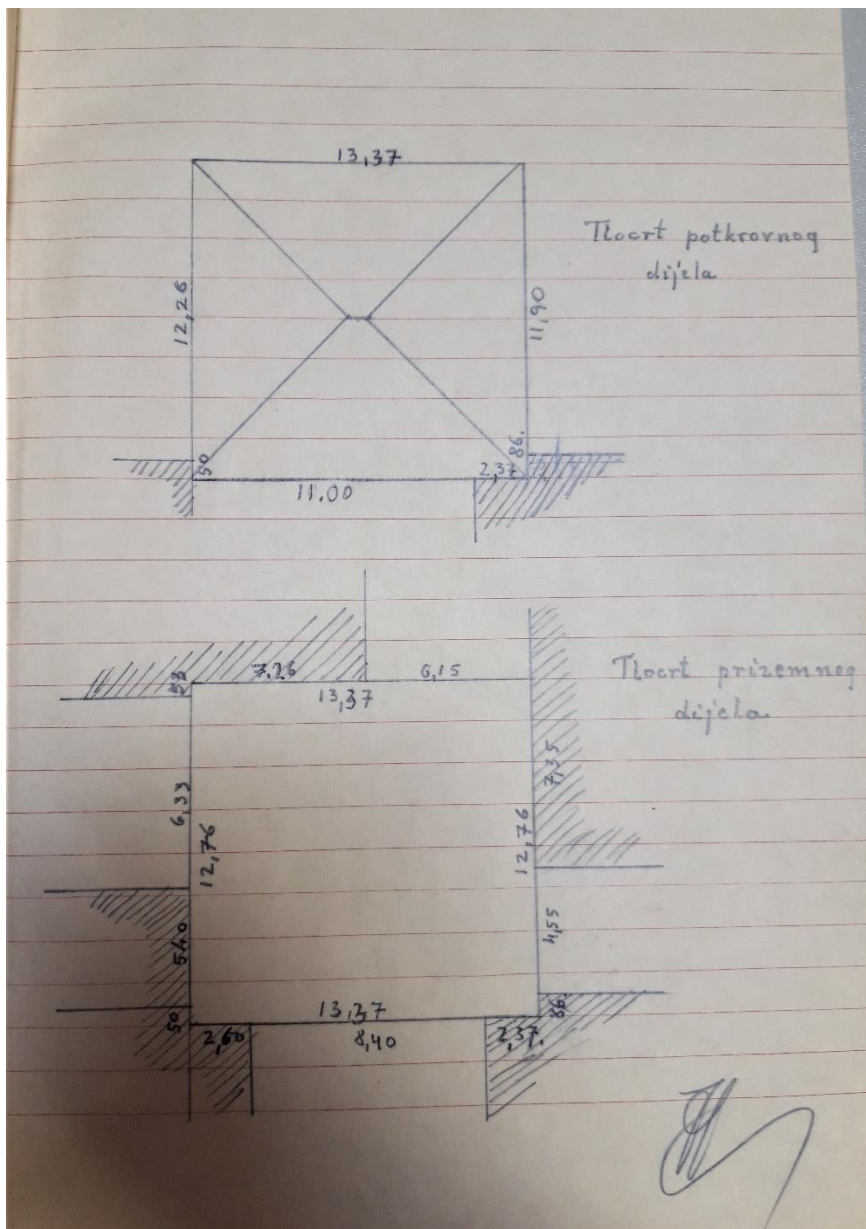 13,37
Tlocrt potkrovnog
dijela
12,26
11,90
50
86.
2,37
11.00
53
7,26
6,15
13,37
Tlocrt prizemnog
dijela.
6,33
12,76
12,76
7,35
5,40
4,55
50
2,60
13,37
8,40
2,37.
86.